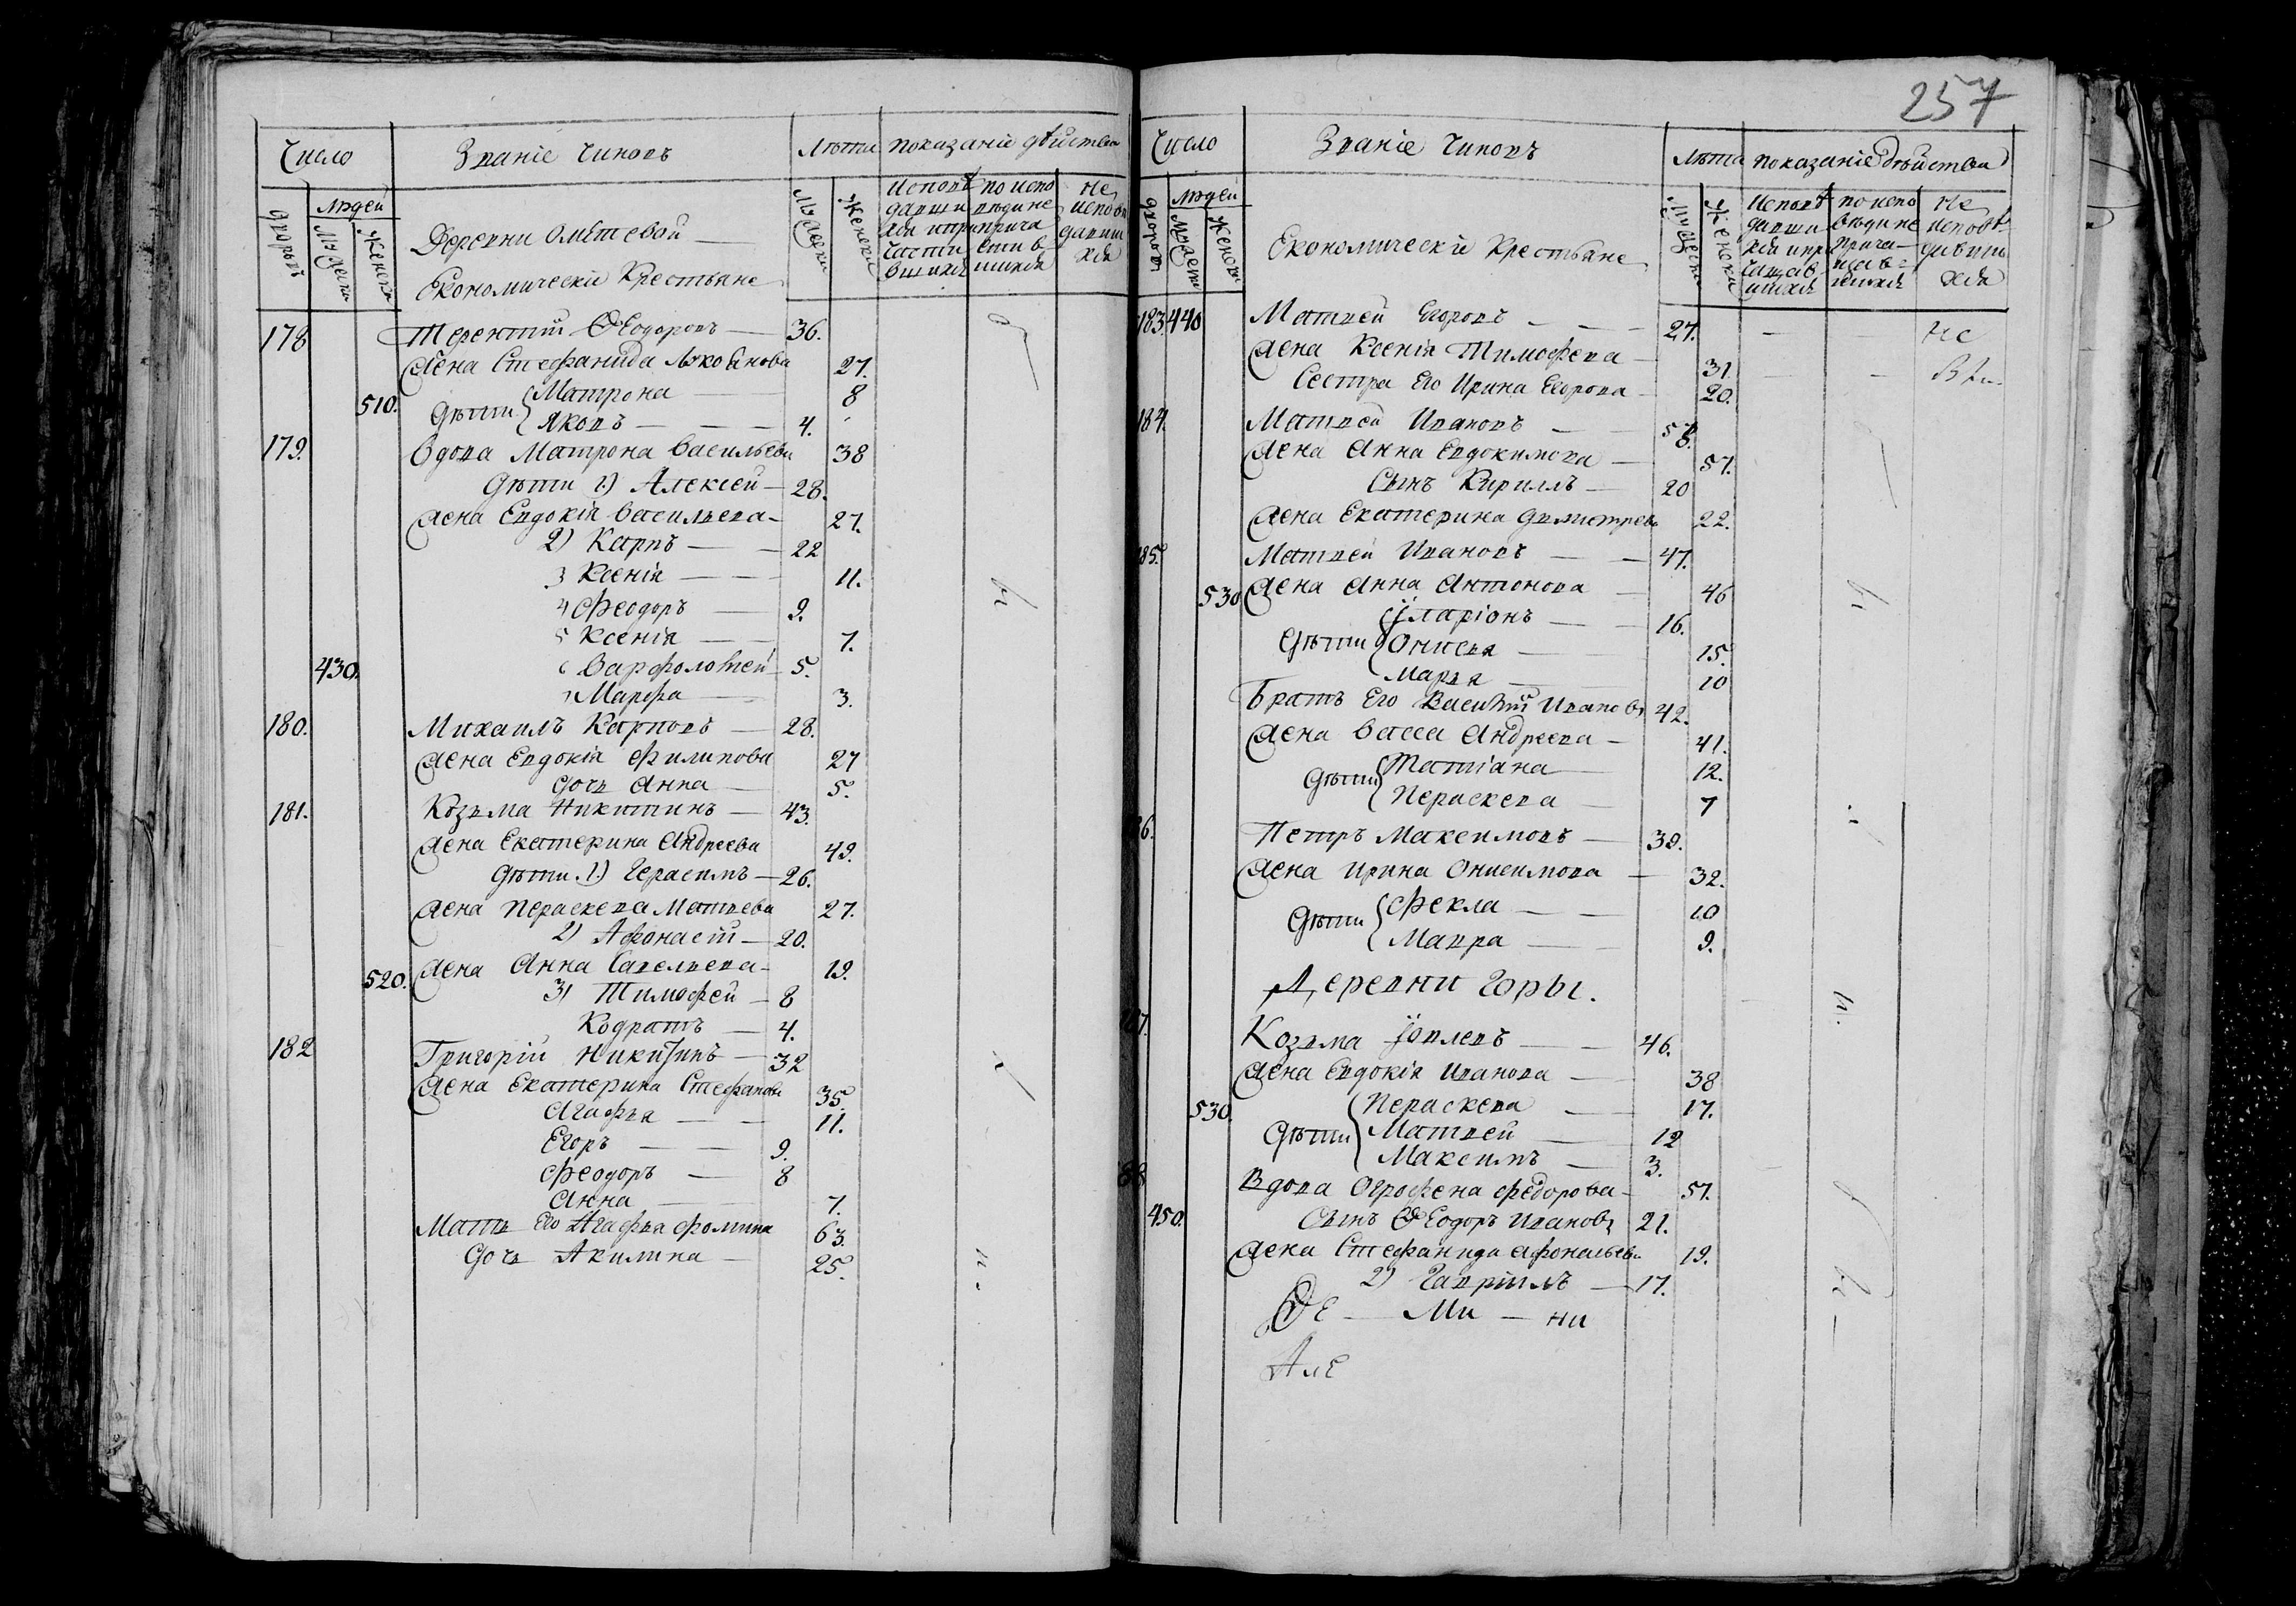 Число Званіе чиновъ Лѣта показаніе дѣйства
дворовъ людей мужеска женска
Деревни Омѣтевой
Економическіи Крестьяне
мужески женски
исповѣдавшихся и причастившихся по исповѣди не причастившихся не исповѣдавшихся
178 Терентій Ѳеодоровъ 36.
Жена Стефанида Яковлева 27.
510. Дѣти Матрона 8
Яковъ 4.
179. Вдова Матрона Васильева 38
Дѣти 1) Алексей 28.
Жена Евдокія Васильева 27.
2) Карпъ 22
3 Ксенія 11.
4 Феодоръ 9.
5 Ксенія 7.
430. 6 Варфоломей 5.
7 Марфа 3.
180. Михаилъ Карповъ 28.
Жена Евдокія Филипова 27
дочь Анна 5.
181. Козьма Никитинъ 43.
Жена Екатерина Андреева 49.
Дѣти 1) Герасимъ 26.
Жена Пераскева Матвева 27.
2) Афонасій 20.
520. Жена Анна Савельева 19.
3) Тимофей 8
Кодратъ 4.
182 Григорій Никитинъ 32
Жена Екатерина Стефанова 35.
Агафья 11.
Егоръ 9.
Феодоръ 8
Анна 7.
Мать Его Агафья Фомина 63.
Дочь Акилина 25.
257
Число Званіе чиновъ Лѣта показаніе дѣйства
дворовъ людей мужеска женска
Економическіи Крестьяне
мужески женски
исповѣдавшихся и причащавшихся по исповѣди не причащавшихся не исповѣдавшихся
183 440 Матвей Егоровъ 27. не
Жена Ксенія Тимофеева 31.
Сестра Его Ирина Егорова 20.
184. Матвей Ивановъ 58.
Жена Анна Евдокимова 57.
Сынъ Кириллъ 20
Жена Екатерина Димитрева 22.
185. Матвей Ивановъ 47.
530 Жена Анна Антонова 46
Дѣти Їларіонъ 16.
Онисья 15.
Марья 10
Братъ Его Василій Ивановъ 42.
Жена Васса Андреева 41.
Дѣти Татіана 12.
Пераскева 7
86. Петръ Максимовъ 39.
Жена Ирина Онисимова 32.
Дѣти Фекла 10
Мавра 9.
Деревни Горы.
87. Козьма Їовлевъ 46.
Жена Евдокія Иванова 38
530. Дѣти Пераскева 17.
Матвей 12
Максимъ 3.
88 Вдова Огрофена Федорова 57.
450. Сынъ Ѳеодоръ Ивановъ 21.
Жена Стефанида Афонасьева 19.
2) Гавріилъ 17.
Ѳе — Ми — ни
Але